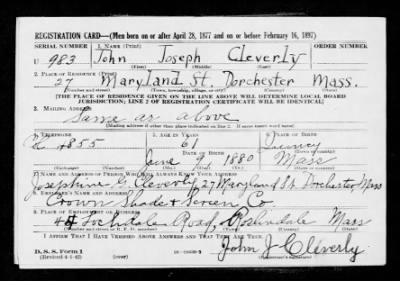 REGISTRATION CARD—(Men born on or after April 28, 1877 and on or before February 16, 1897)
SERIAL NUMBER 1. NAME (Print) ORDER NUMBER
U 983 John Joseph Cleverly U
(First) (Middle) (Last)
2. PLACE OF RESIDENCE (Print)
27 Maryland St. Dorchester Mass.
(Number and street) (Town, township, village, or city) (County) (State)
[THE PLACE OF RESIDENCE GIVEN ON THE LINE ABOVE WILL DETERMINE LOCAL BOARD
JURISDICTION; LINE 2 OF REGISTRATION CERTIFICATE WILL BE IDENTICAL]
3. MAILING ADDRESS
Same as above
[Mailing address if other than place indicated on line 2. If same insert word same]
4. TELEPHONE 5. AGE IN YEARS 6. PLACE OF BIRTH
4855 61 Quincy
DATE OF BIRTH
June 9, 1880 Mass
7. NAME AND ADDRESS OF PERSON WHO WILL ALWAYS KNOW YOUR ADDRESS
Josephine G. Cleverly 27 Maryland St Dorchester Mass
8. EMPLOYER'S NAME AND ADDRESS
Crown Shade & Screen Co.
9. PLACE OF EMPLOYMENT OR BUSINESS
Road, Roslindale Mass
(Number and street or R. F. D. number) (Town) (County) (State)
I AFFIRM THAT I HAVE VERIFIED ABOVE ANSWERS AND THAT THEY ARE TRUE.
John J Cleverly
D. S. S. Form 1
(Revised 4-1-42) (over) (Registrant's signature)